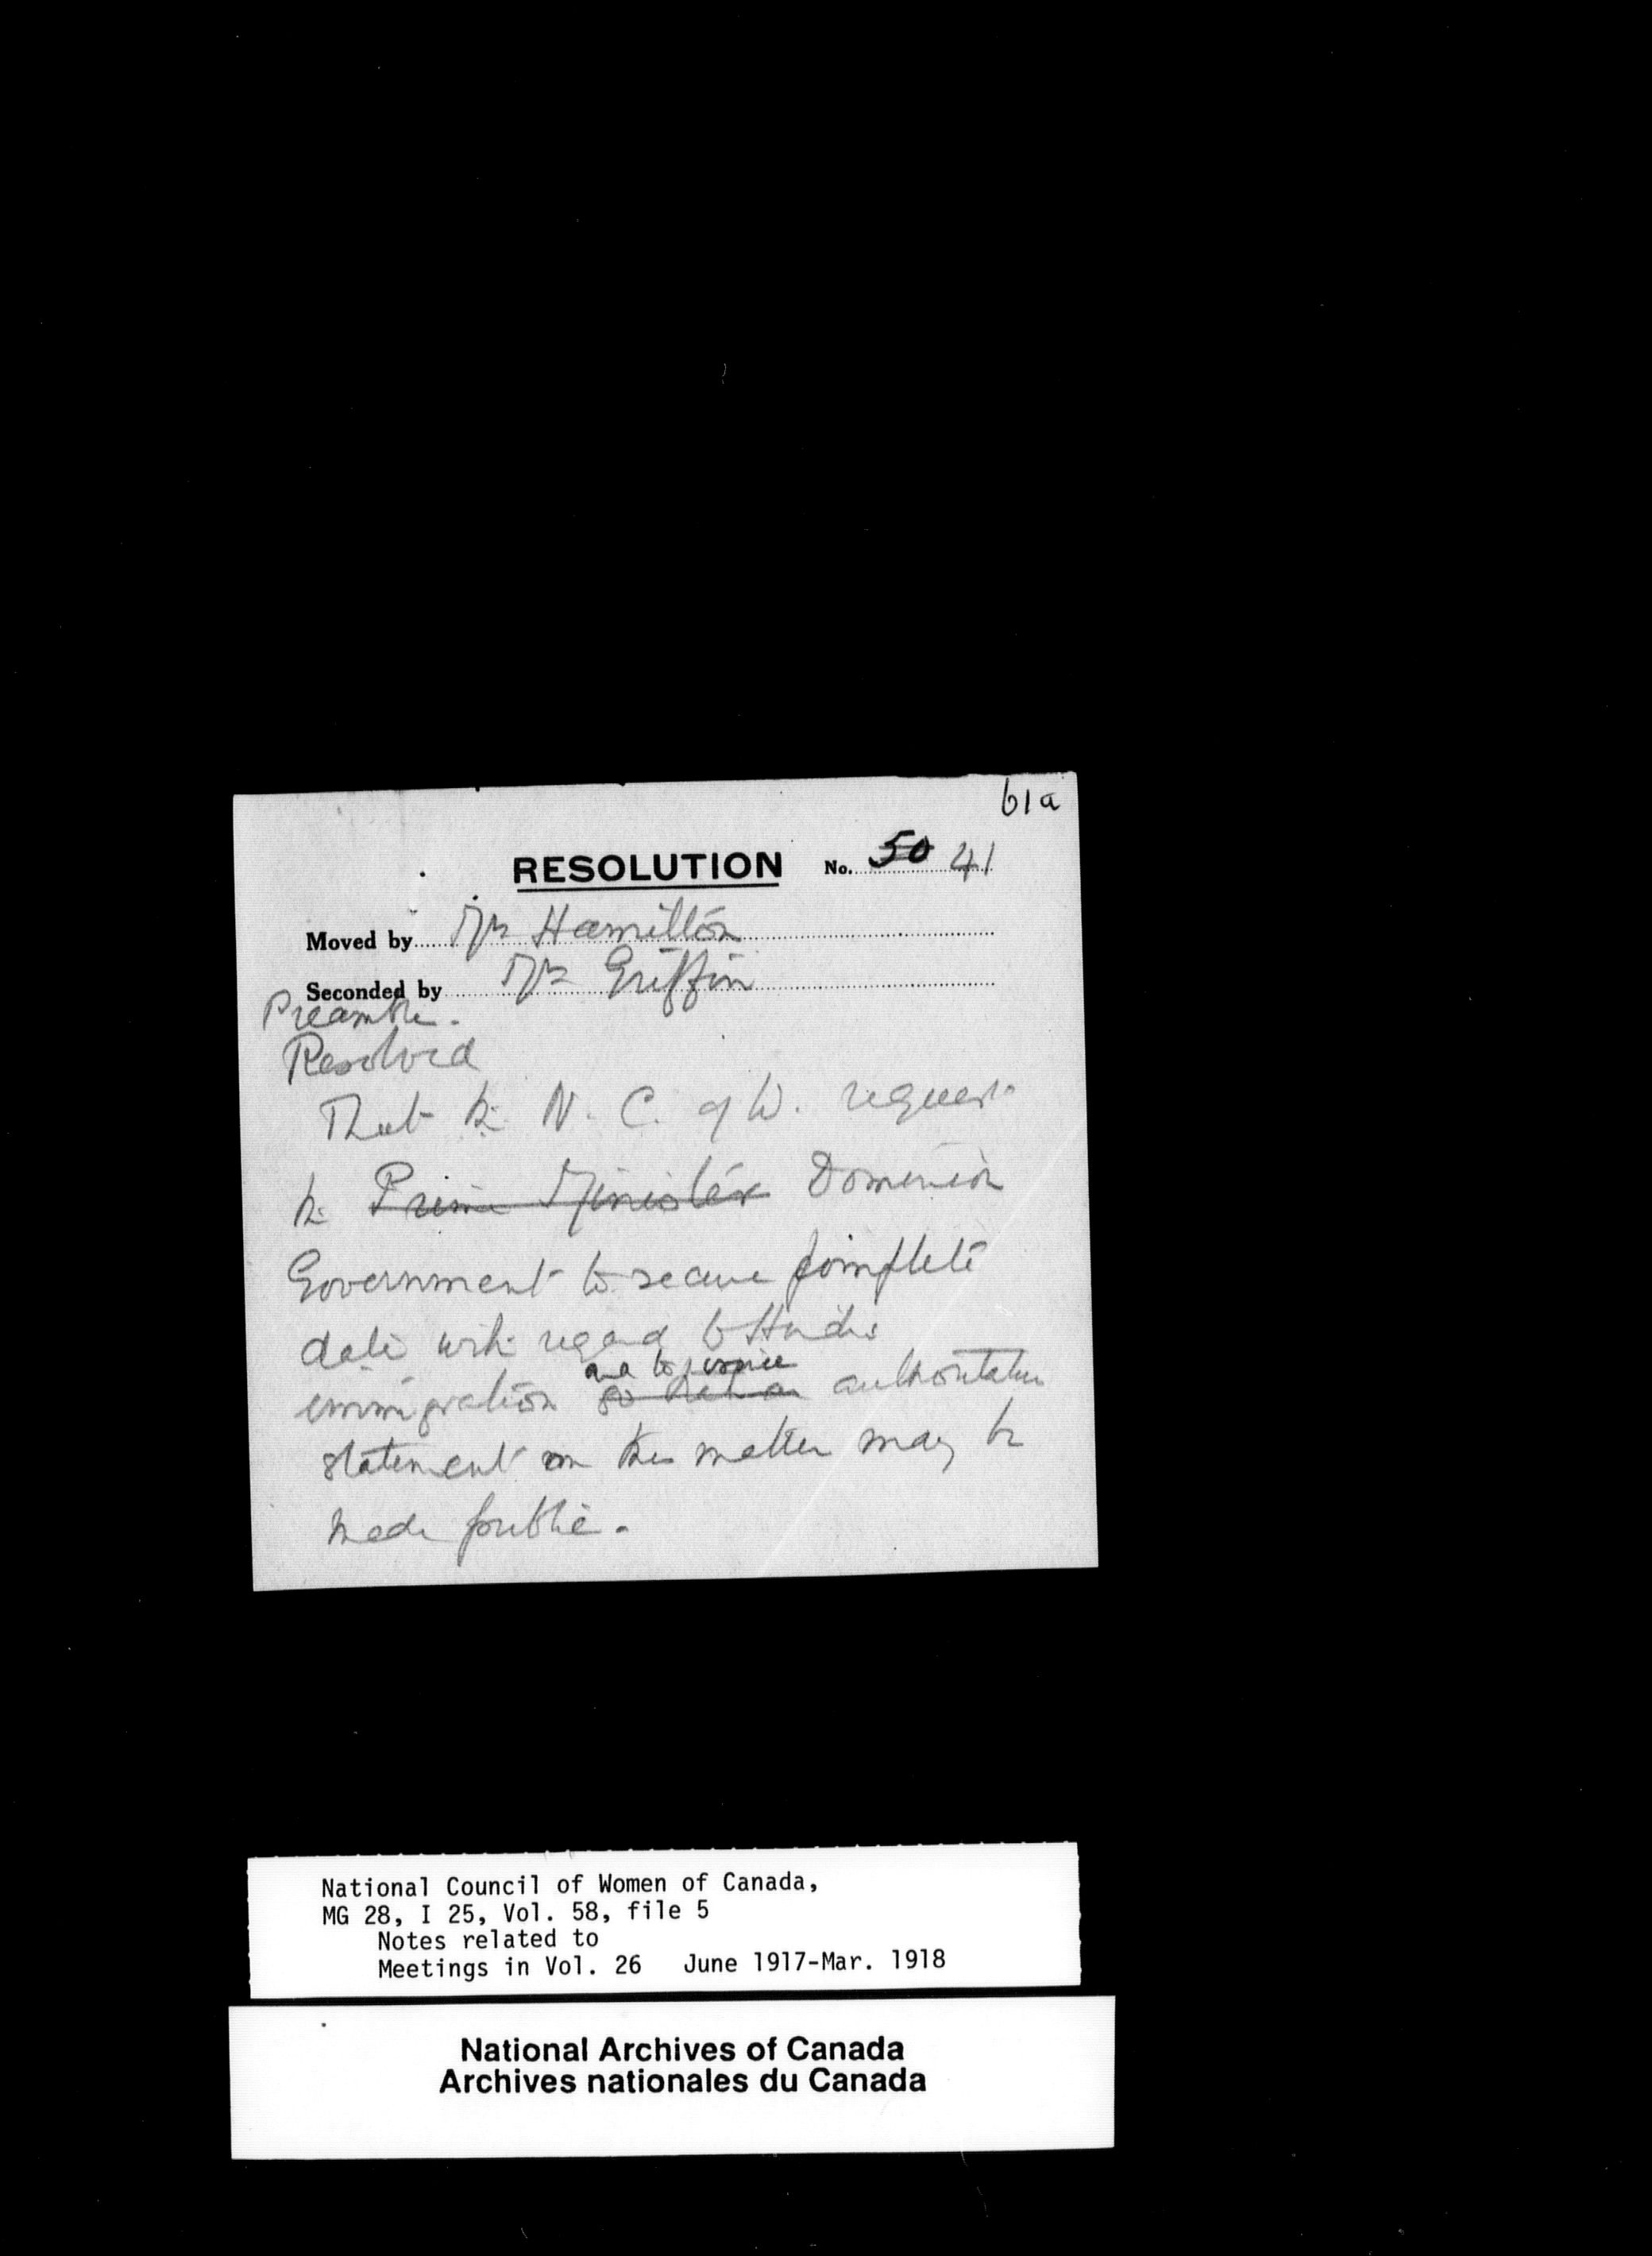 61a
RESOLUTION No. 50 41
Moved by Mrs Hamilton
Seconded by Mrs Griffin
Preamble.
Resolved
That the N. C. of W. request
the Prime Minister Dominion
Government to secure complete
data with regard to Hindu
and to
immigration so that an authoritative
statement on this matter may be
made public.
National Council of Women of Canada,
MG 28, I 25, Vol. 58, file 5
Notes related to
Meetings in Vol. 26 June 1917-Mar. 1918
National Archives of Canada
Archives nationales du Canada